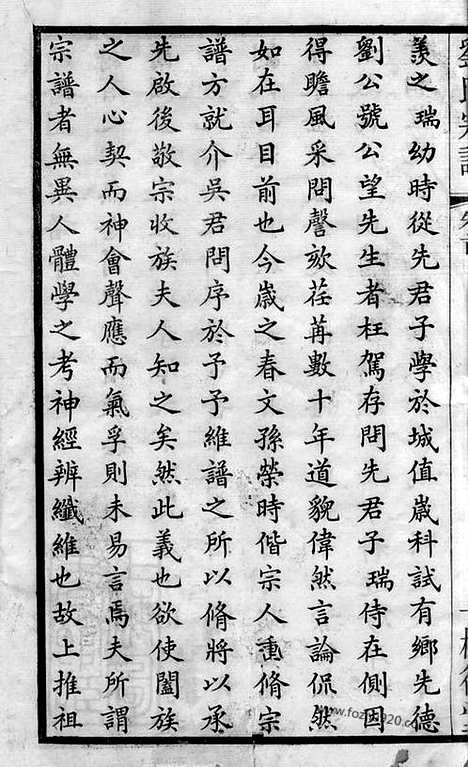 羨之瑞幼時從先君子學於城值歲科試有鄉先德
劉公號公望先生者枉駕存問先君子瑞侍在側因
得瞻風采問謦欬荏苒數十年道貌偉然言論侃然
如在耳目前也今歲之春文孫榮時偕宗人重脩宗
譜方就介吳君問序於予予維譜之所以脩將以承
先啟後敬宗收族夫人知之矣然此義也欲使闔族
之人心契而神會聲應而氣孚則未易言焉夫所謂
宗譜者無異人體學之考神經辨纖維也故上推祖